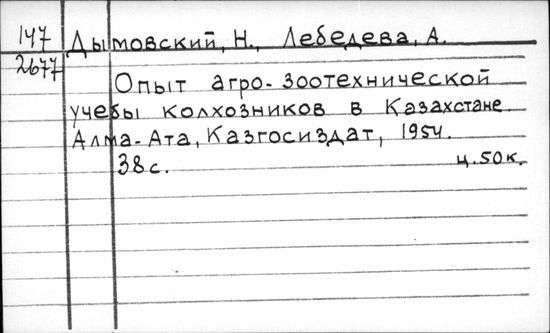 147 Дымовский, Н., Лебедева, А.
2677
Опыт агро-зоотехнической
учебы колхозников в Казахстане.
Алма-Ата, Казгосиздат, 1954.
38с. ц. 50к.